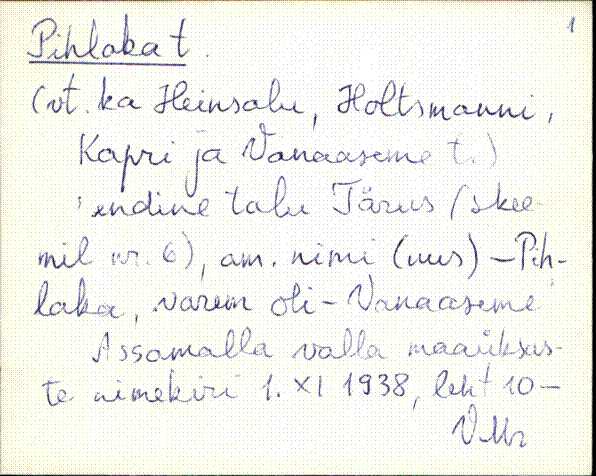 1
Pihlaka t.
(vt. ka Heinsalu, Holtsmanni,
Kapri ja Vanaaseme t.)
'endine talu Tärus (skee-
mil nr. 6), am. nimi (uus) – Pih-
laka, varem oli – Vanaaseme'
Assamalla valla maaüksus-
te nimekiri 1. XI 1938, leht 10 –
VMr